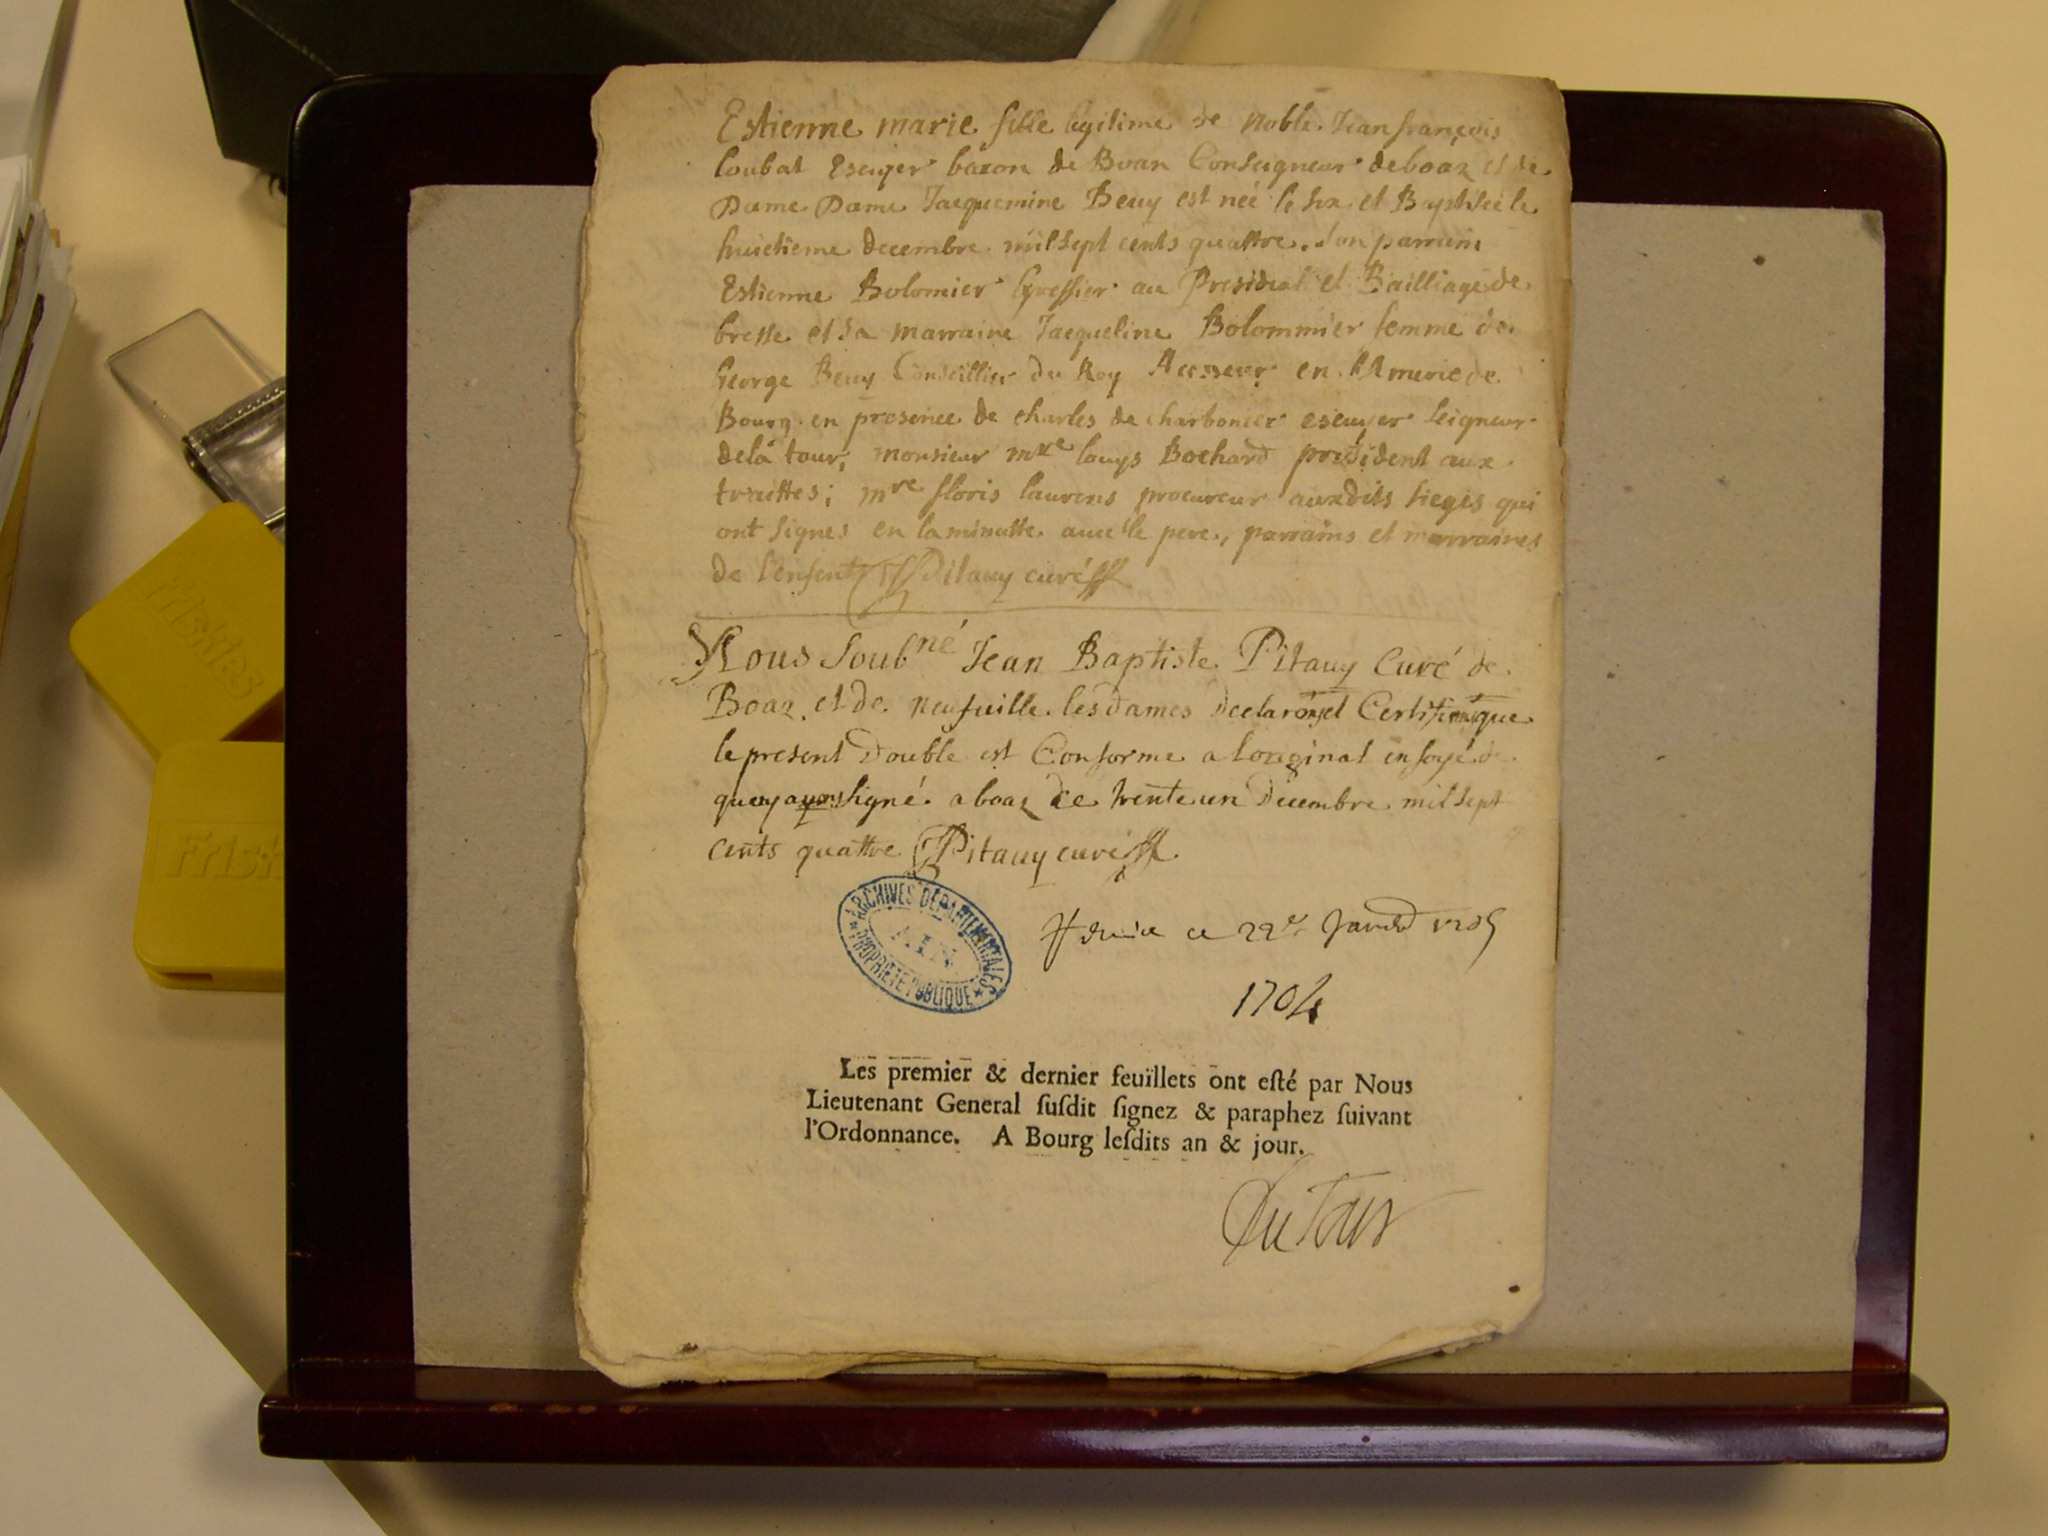 Estienne marie fille legitime de noble Jean françois
Loubat Escuyer baron de Boan Conseigneur de boaz et de
Dame Dame Jacquemine Beuy est née le six et Baptisée le
huictieme decembre mil sept cents quattre. Son parrain
Estienne Bolomier Greffier au Presidial et Bailliage de
bresse et sa marraine Jacqueline Bolommier femme de
George Beuy Conseillier du Roy Accesseur en Mairie de
Bourg en presence de charles de charbonier escuyer seigneur
dela tour, monsieur mre louys Bochard président aux
traittes; mre floris laurens procureur auxdits sieges qui
ont signes en la minutte avec le pere, parrains et marraines
de l'enfent Pitauy curé
Nous Soubné Jean Baptiste Pitauy Curé de
Boaz et de neufuille les dames declarons et Certifions que
le present Double est Conforme a loriginal en foy de
quoy ayons signé. a boaz ce trente un Decembre mil sept
cents quattre Pitauy curé
ce 22e Janv 1705
1704
ARCHIVES DÉPARTEMENTALES
AIN
PROPRIÉTÉ PUBLIQUE
Les premier & dernier feuillets ont eſté par Nous
Lieutenant General ſuſdit ſignez & paraphez ſuivant
l'Ordonnance. A Bourg leſdits an & jour.
DuTour
Friskies
Frisk